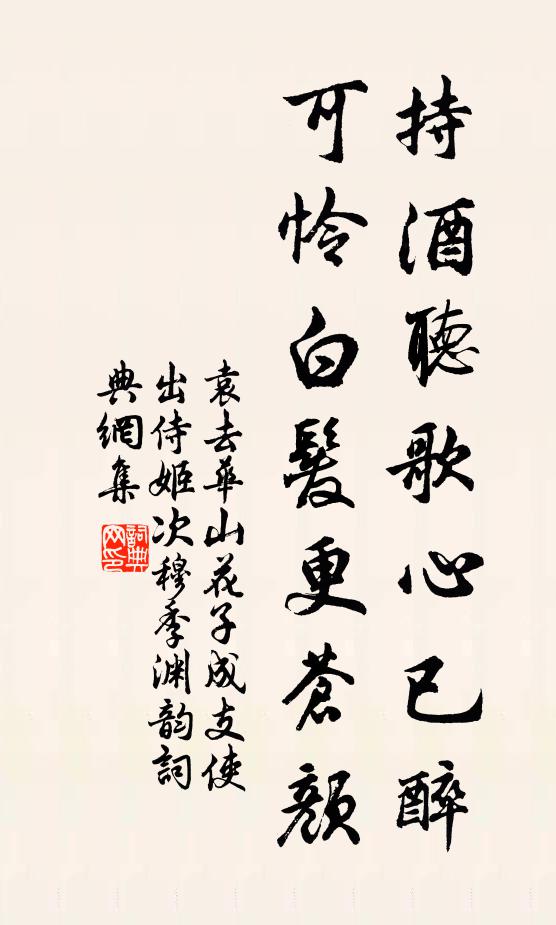 持酒聽歌心已醉
可怜白髮更蒼顏
袁去華山花子成支使
出侍姬次穆季淵韵詞
典網集
詞典
网印